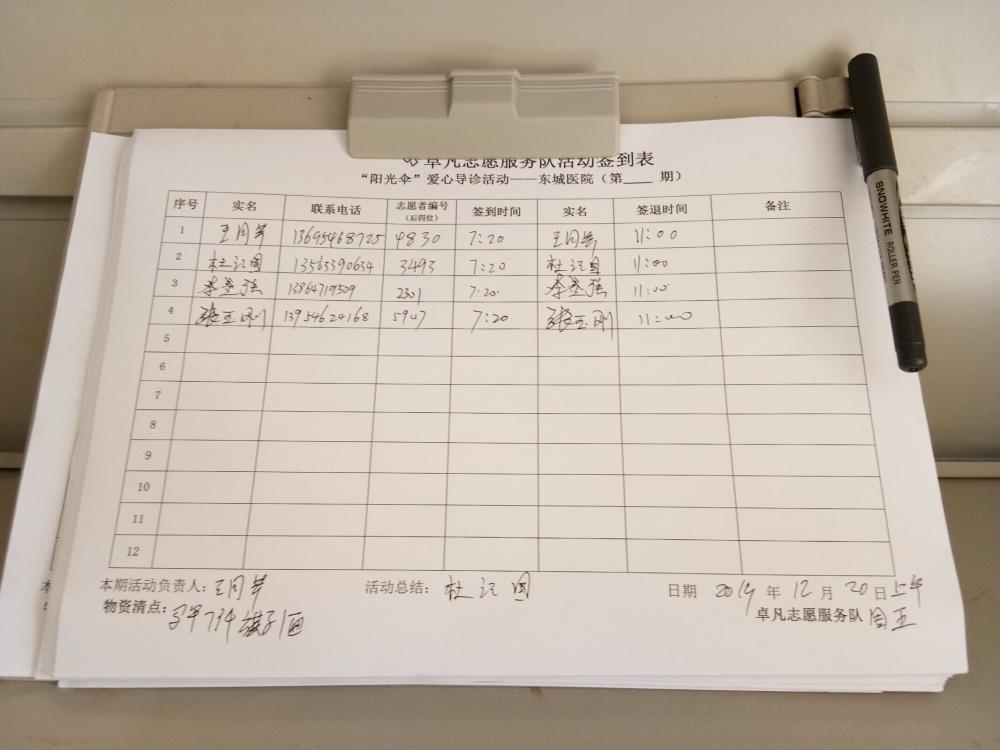 卓凡志愿服务队活动签到表
“阳光伞”爱心导诊活动——东城医院（第____期）
序号 实名 联系电话 志愿者编号（后四位） 签到时间 实名 签退时间 备注
1 王同 13695468725 4830 7:20 王同 11:00
2 杜江国 13565390634 3493 7:20 杜江国 11:00
3 李 强 13864719509 2301 7:20 李 强 11:00
4 张玉刚 13954624168 5947 7:20 张玉刚 11:00
5
6
7
8
9
10
11
12
本期活动负责人：王同 活动总结：杜江国 日期 2019 年 12 月 20 日上午
物资清点： 卓凡志愿服务队 周五
SNOWHITE ROLLER PEN